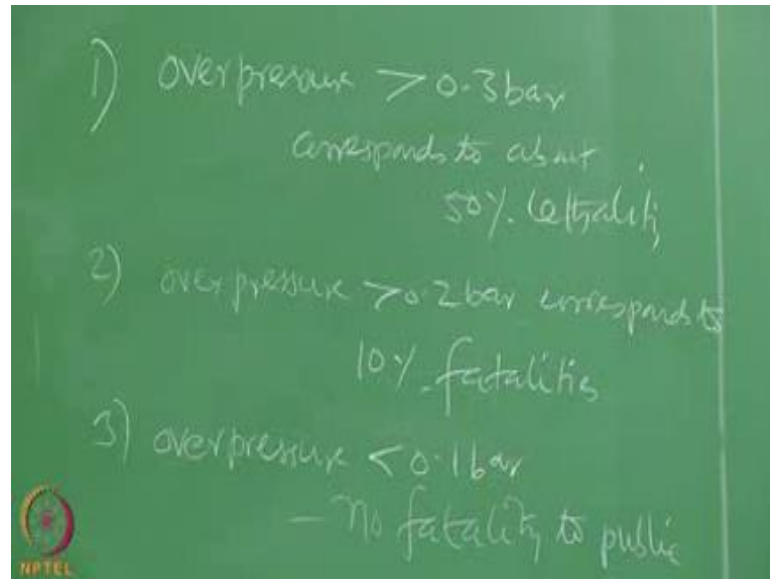 1) overpressure > 0.3bar
corresponds to about
50% lethality
2) overpressure > 0.2bar corresponds to
10% fatalities
3) overpressure < 0.1bar
- No fatality to public
NPTEL